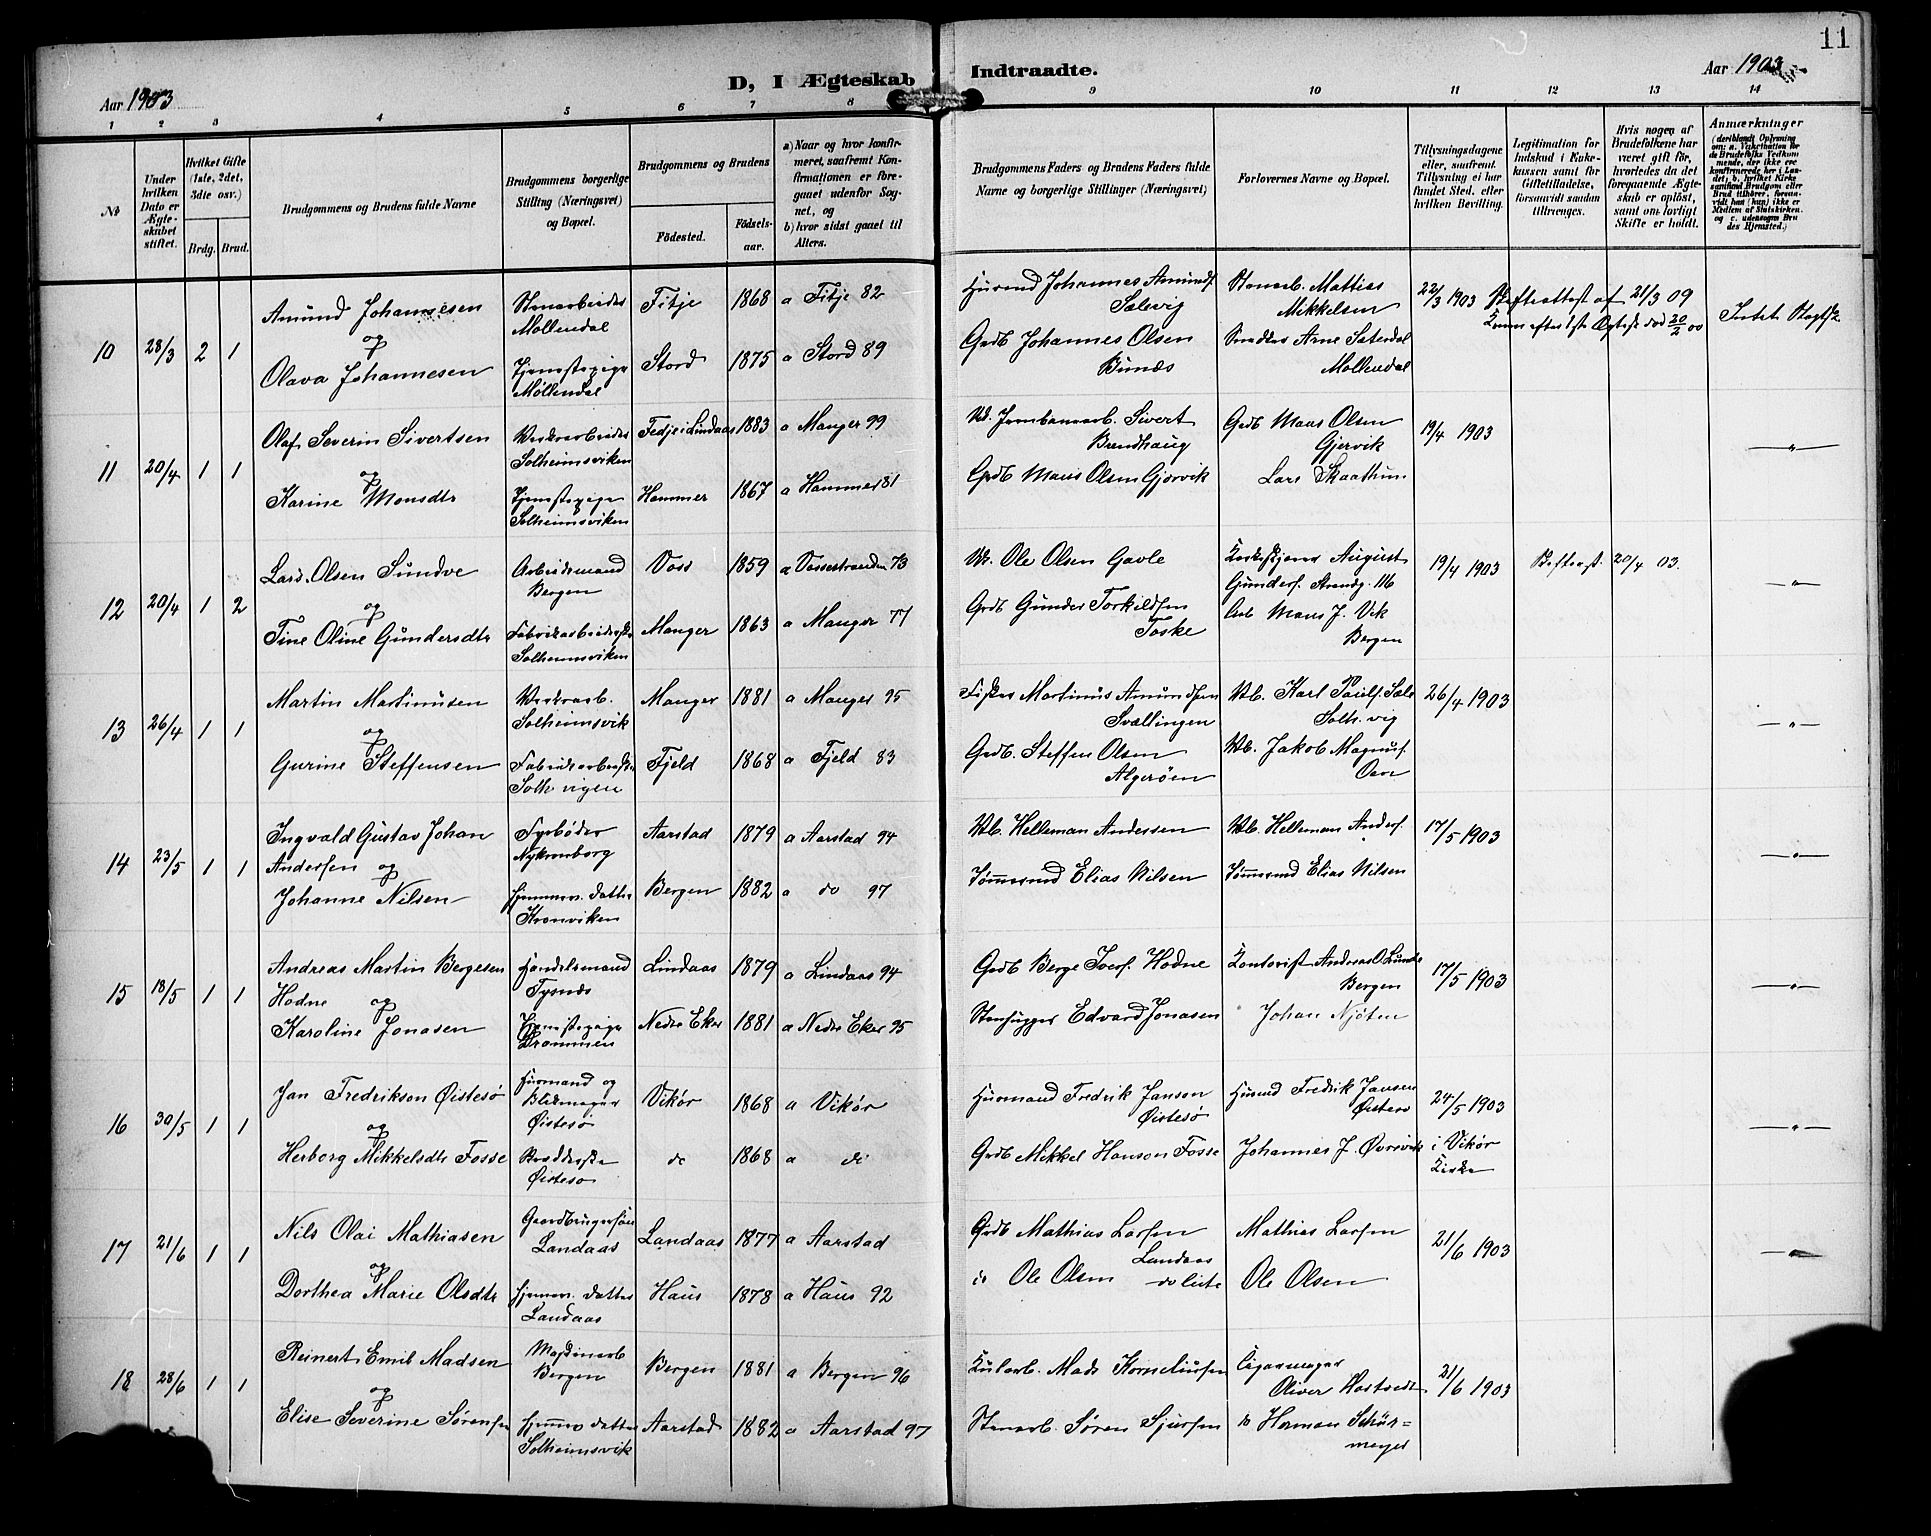 11
D, I Ægteskab Indtraadte.
Aar 1903
Aar 1903
1 2 3 4 5 6 7 8 9 10 11 12 13 14
No
Under hvilken Dato er Ægteskabet stiftet.
Hvilket Gifte (1ste, 2det, 3dte osv.)
Brdg. Brud.
Brudgommens og Brudens fulde Navne
Brudgommens borgerlige Stilling (Næringsvei) og Bopæl.
Brudgommens og Brudens
Födested.
Födselsaar.
a) Naar og hvor konfirmeret, saafremt Konfirmationen er foregaaet udenfor Sognet, og
b) hvor sidst gaaet til Alters.
Brudgommens Faders og Brudens Faders fulde Navne og borgerlige Stillinger (Næringsvei)
Forlovernes Navne og Bopæl.
Tillysningsdagene eller, saafremt Tillysning ei har fundet Sted, efter hvilken Bevilling.
Legitimation for Indskud i Enkekassen samt for Giftetilladelse, forsaavidt saadan tiltrænges.
Hvis nogen af Brudefolkene har været gift för, hvorledes da det foregaaende Ægteskab er oplöst, samt om lovligt Skifte er holdt.
Anmærkninger
10 28/3 2 1
Amund Johannesen
og
Olava Johannesen
Stenarbeider
Møllendal
Tjenestepige
Møllendal
Fitje 1868 a Fitje 82
Stord 1875 a Stord 89
Husmd Johannes Amunds.
Salevig
Grdb Johannes Olsen
Stenarb. Mattias
Mikkelsen
Arne
Møllendal
22/3 1903
Skifteattest af 21/3 09
20/2 00
11 20/4 1 1
Olaf Severin Sivertsen
og
Karine Monsdtr
Værksarbeider
Solheimsviken
Tjenestepige
Solheimsviken
Fedje i Lindaas 1883 a Manger 99
Hammer 1867 a Hammer 81
Sivert
Brendhaug
Grdb Mons Olsen Gjervik
Grdb Mons Olsen
Gjervik
Lars Skaathun
19/4 1903
-"-
12 20/4 1 2
Lars Olsen Sundve
og
Tine Oline Gundersdtr
Arbeidsmand
Bergen
Fabrikarbeiderske
Solheimsviken
Voss 1859 a Vossestranden 73
Manger 1863 a Manger 77
Ole Olsen Gavle
Grdb Gunder Torkildsen
Toske
August
Gunders.
Arb Mons J. Vik
Bergen
19/4 1903
Skifteatt. 20/4 03.
-"-
13 26/4 1 1
Martin Martinusen
og
Gurine Steffensen
Værksarb.
Solheimsvik
Fabrikarbeiderske
Solh vigen
Manger 1881 a Manger 95
Fjeld 1868 a Fjeld 83
Fisker Martinus Amundsen
Svællingen
Grdb. Steffen Olsen
Algerøen
Vb. Karl Pauls.
Solh. vig
Vb. Jakob Magnus.
26/4 1903
-"-
14 23/5 1 1
Ingvald Gustav Johan
Andersen og
Johanne Nilsen
Fyrbøder
Nykronborg
hjemmev. Datter
Kronviken
Aarstad 1879 a Aarstad 94
Bergen 1882 a do 97
Vb. Helleman Andersen
Tømmermd Elias Nilsen
Vb. Helleman Anders.
Tømmermd Elias Nilsen
17/5 1903
-"-
15 18/5 1 1
Andreas Martin Bergesen
Hodne og
Karoline Jonasen
Handelsmand
Tysnæs
Tjenestepige
Drammen
Lindaas 1879 a Lindaas 94
Nedre Eker 1881 a Nedre Eker 95
Grdb Berge Ivers. Hodne
Stenhugger Edvard Jonasen
Kontorist Andreas O Lunde
Bergen
Johan Njøten
17/5 1903
-"-
16 30/5 1 1
Jan Fredrikson Øistesø
og
Herborg Mikkelsdtr Fosse
Husmand og
Blikmager
Øistesø
Øistesø
Vikør 1868 a Vikør
do 1868 a do
Husmand Fredrik Janson
Øistesø
Grdb Mikkel Hanson Fosse
Husmd Fredrik Jansen
Øistesø
Johannes J. Øvrevik
24/5 1903
i Vikør
Kirke
-"-
17 21/6 1 1
Nils Olai Mathiasen
og
Dorthea Marie Olsdtr
Gaardbrugersøn
Landaas
hjemmev. Datter
Landaas
Landaas 1877 a Aarstad
Haus 1878 a Haus 92
Grdb Mathias Larsen
Landaas
do Ole Olsen
Mathias Larsen
Ole Olsen
21/6 1903
-"-
18 28/6 1 1
Reinert Emil Madsen
og
Elise Severine Sørensen
Maskinarb
Bergen
hjemmev Datter
Solheimsvik
Bergen 1881 a Bergen 96
Aarstad 1882 a Aarstad 97
Kularb. Mads Korneliussen
Stenarb. Søren Sjursen
Cigarmager
Oliver Hostvedt
do Herman Schür=
meyer
21/6 1903